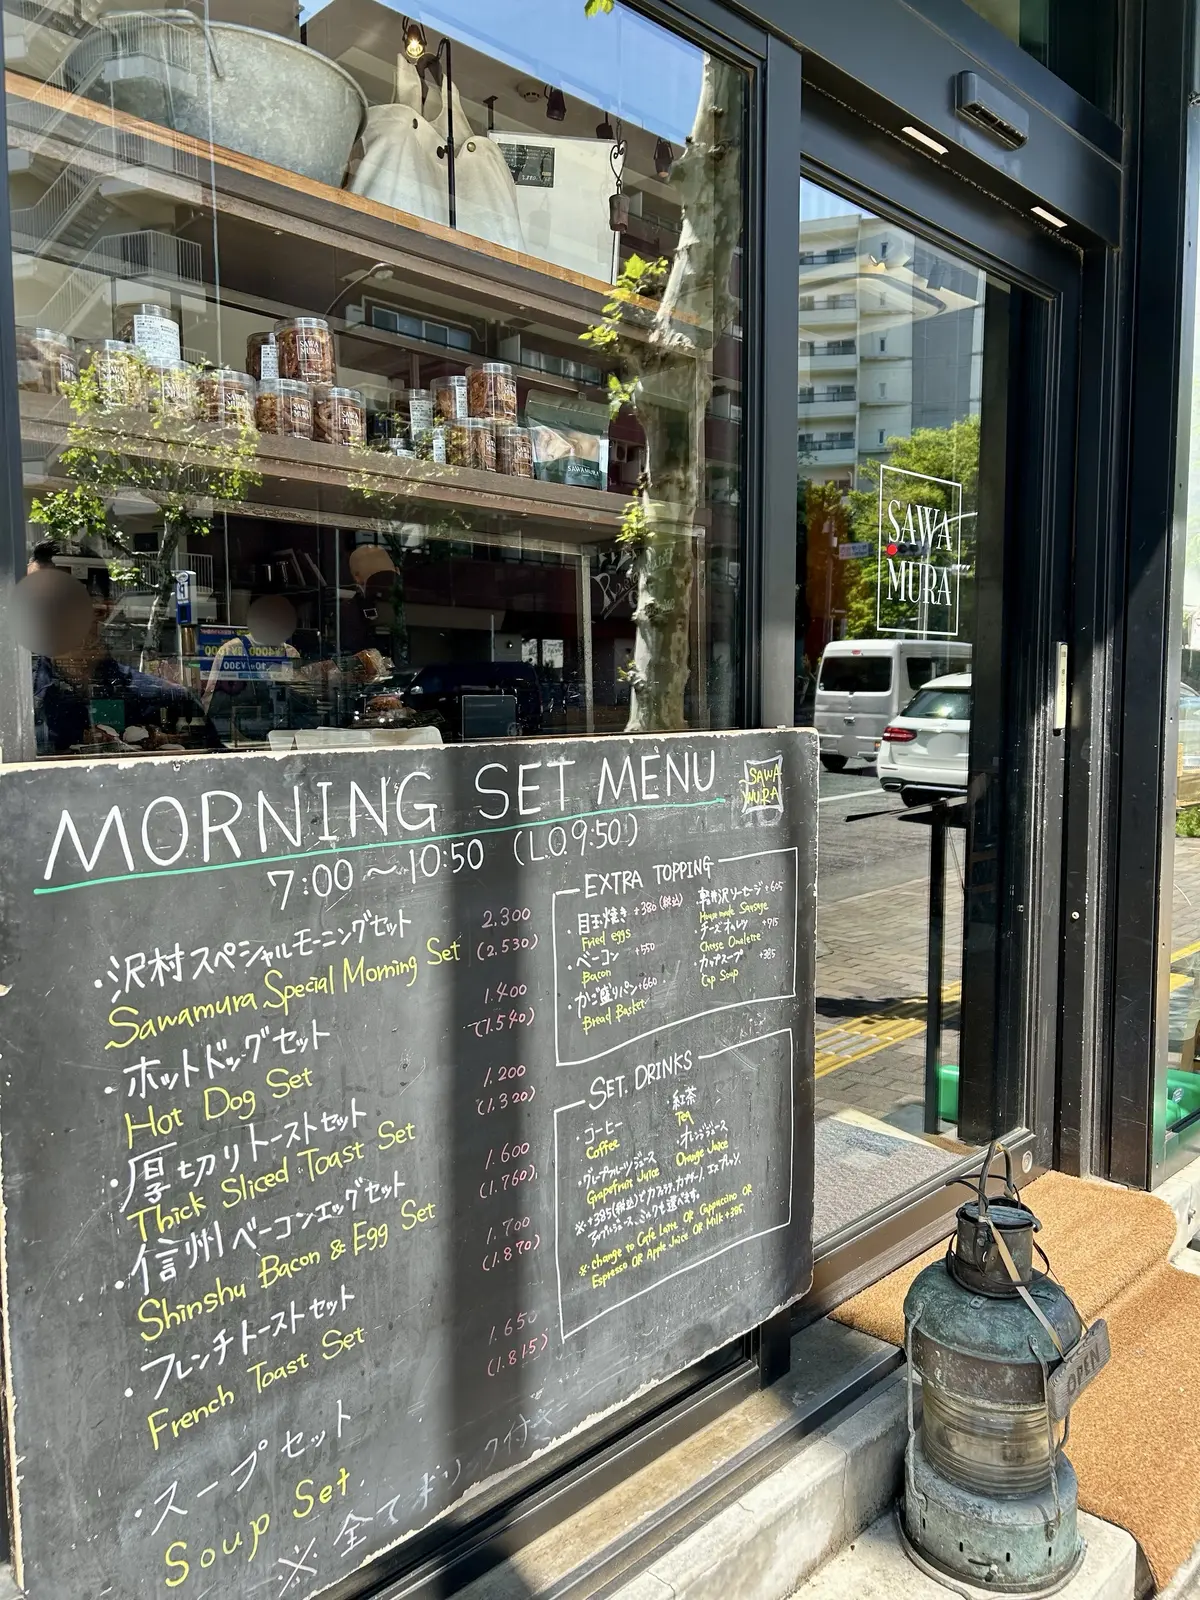 SAWA
MURA
MORNING SET MENU
SAWA
MURA
7:00～10:50 (L.O 9:50)
・沢村スペシャルモーニングセット 2.300
Sawamura Special Morning Set (2.530)
・ホットドッグセット 1.400
Hot Dog Set (1.540)
・厚切りトーストセット 1.200
Thick Sliced Toast Set (1.320)
・信州ベーコンエッグセット 1.600
Shinshu Bacon & Egg Set (1.760)
・フレンチトーストセット 1.700
French Toast Set (1.870)
・スープセット 1.650
Soup Set (1.815)
※全てドリンク付
EXTRA TOPPING
・目玉焼き +380(税込)
Fried eggs
・ベーコン +550
Bacon
・かご盛りパン +660
Bread Basket
・軽井沢ソーセージ +605
Housemade Sausage
・チーズオムレツ +715
Cheese Omelette
・カップスープ +385
Cup Soup
SET DRINKS
・コーヒー
Coffee
・紅茶
Tea
・グレープフルーツジュース
Grapefruit Juice
・オレンジジュース
Orange Juice
※+385(税込)でカフェラテ、カプチーノ、エスプレッソ、
アップルジュース、ミルクも選べます。
※change to Cafe Latte OR Cappuccino OR
Espresso OR Apple Juice OR Milk +385.
OPEN